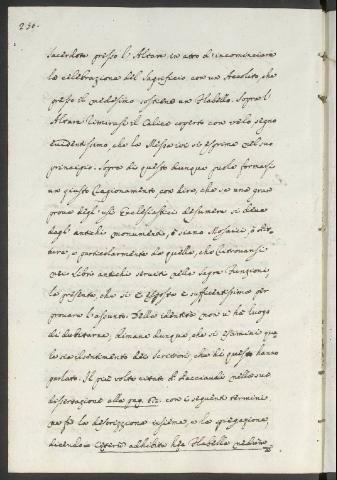 230.
sacerdote presso l'Altare in atto d'incominciare
la celebrazione del Sagrificio con un Accolito, che
presso il medesimo sostiene un Flabello. Sopra l'
Altare rimirasi il Calice coperto con velo segno
evidentissimo, che la Messa ivi si esprime nel suo
principio. Sopra di questo dunque puole formarsi
un giusto ragionamento con dire, che se una gran
prova degl'usi Ecclesiastici desumere si deve
dagl'antichi monumenti, ò siano Mosaici, ò Pit-
ture, e particolarmente da quelle, che ritrovansi
nei Libri antichi serviti nelle Sagre Funzioni,
la presente, che si è esposta è sufficientissima per
provare l'assunto. Della identità non vi ha luogo
di dubitarne, rimane dunque, che si esamini qua-
le sia il sentimento dei Scrittori, che di questo hanno
parlato. Il più volte citato P. Paciaudi nella sua
dissertazione alla pag. 62. con i seguenti termini
ne fà la descrizzione insieme, e la spiegazione,
dicendo